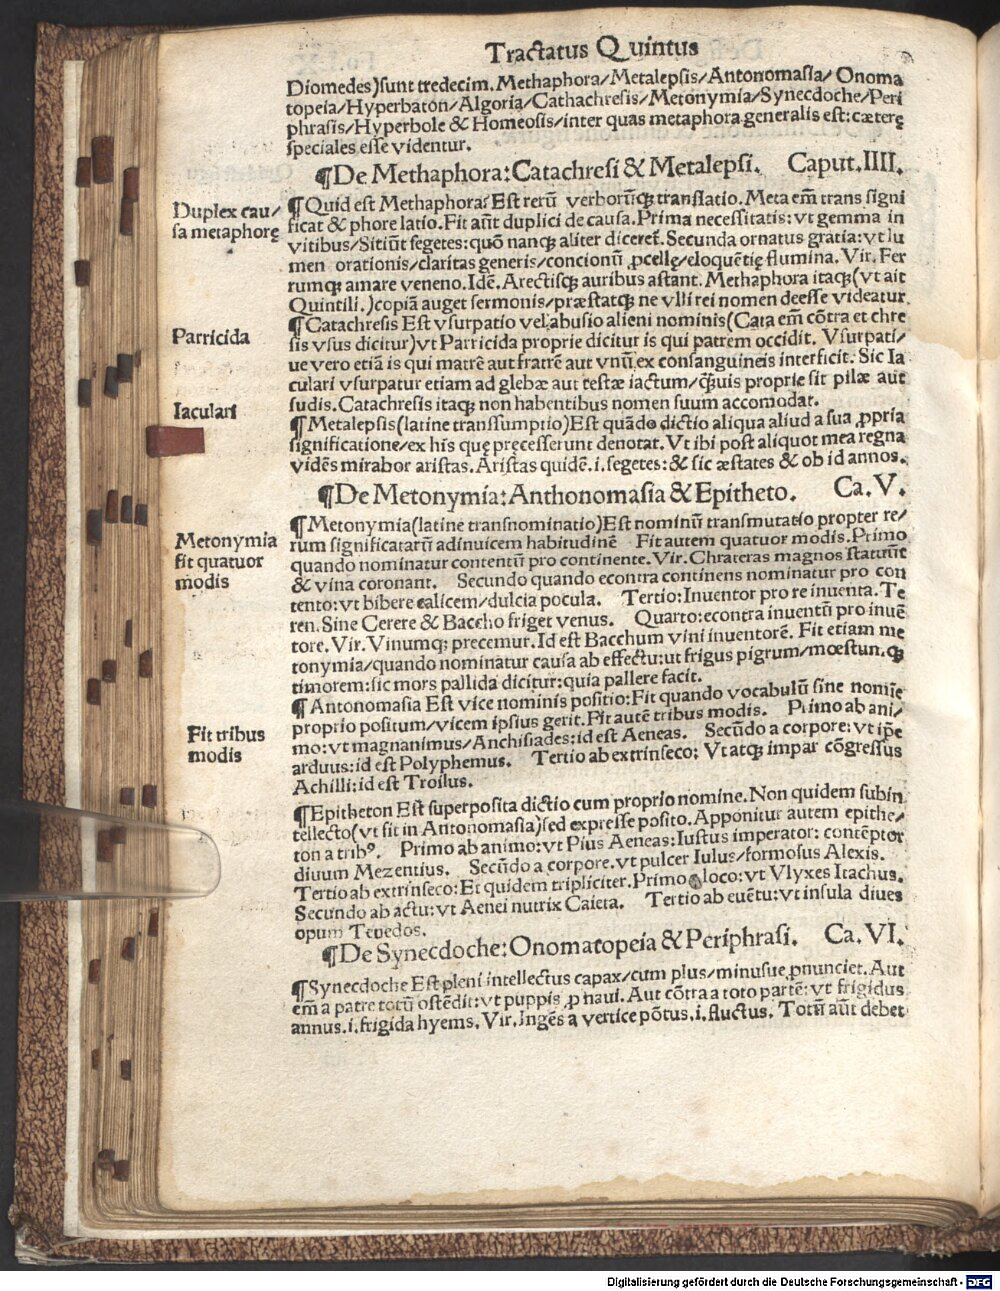 Tractatus Quintus
Diomedes)sunt tredecim. Methaphora/Metalepsis/Antonomasia/ Onoma
topeia/Hyperbaton/Algoria/Cathachresis/Metonymia/Synecdoche/Peri
phrasis/Hyperbole & Homeosis/inter quas metaphora generalis est: cæterę
speciales esse videntur.
¶De Methaphora: Catachresi & Metalepsi. Caput.IIII.
Duplex cau/
sa metaphorę
¶Quid est Methaphora? Est rerū verborūqꝫ translatio. Meta em̄ trans signi
ficat & phore latio. Fit aūt duplici de causa. Prima necessitatis: vt gemma in
vitibus/Sitiūt segetes: quō nanqꝫ aliter diceret̃. Secunda ornatus gratia: vt lu
men orationis/claritas generis/concionū ꝓcellę/eloquētię flumina. Vir. Fer
rumqꝫ amare veneno. Idē. Arectisqꝫ auribus astant. Methaphora itaqꝫ(vt ait
Quintili.)copiā auget sermonis/præstatqꝫ ne vlli rei nomen deesse videatur.
Parricida
¶Catachresis Est vsurpatio vel abusio alieni nominis(Cata em̄ cōtra et chre
sis vsus dicitur)vt Parricida proprie dicitur is qui patrem occidit. Vsurpati/
ue vero etiā is qui matrē aut fratrē aut vnū ex consanguineis interficit. Sic Ia
culari vsurpatur etiam ad glebæ aut testæ iactum/q̄uis proprie sit pilæ aut
Iaculari
sudis. Catachresis itaqꝫ non habentibus nomen suum accomodat.
¶Metalepsis(latine transsumptio)Est quādo dictio aliqua aliud a sua ꝓpria
significatione/ex his quę pręcesserunt denotat. Vt ibi post aliquot mea regna
vidēs mirabor aristas. Aristas quidē.i.segetes: & sic æstates & ob id annos.
¶De Metonymia: Anthonomasia & Epitheto. Ca.V.
Metonymia
fit quatuor
modis
¶Metonymia(latine transnominatio)Est nominū transmutatio propter re/
rum significatarū adinuicem habitudinē Fit autem quatuor modis. Primo
quando nominatur contentū pro continente. Vir. Chrateras magnos statuūt
& vina coronant. Secundo quando econtra continens nominatur pro con
tento: vt bibere calicem/dulcia pocula. Tertio: Inuentor pro re inuenta. Te
ren. Sine Cerere & Baccho friget venus. Quarto: econtra inuentū pro inuē
tore. Vir. Vinumqꝫ precemur. Id est Bacchum vini inuentorē. Fit etiam me
tonymia/quando nominatur causa ab effectu: ut frigus pigrum/mœstumqꝫ
timorem: sic mors pallida dicitur: quia pallere facit.
¶Antonomasia Est vice nominis positio: Fit quando vocabulū sine nomīe
proprio positum/vicem ipsius gerit. Fit autē tribus modis. Primo ab ani/
Fit tribus
modis
mo: vt magnanimus/Anchisiades: id est Aeneas. Secūdo a corpore: vt ip̄e
arduus: id est Polyphemus. Tertio ab extrinseco: Vt atqꝫ impar cōgressus
Achilli: id est Troilus.
¶Epitheton Est superposita dictio cum proprio nomine. Non quidem subin
tellecto(vt fit in Antonomasia)sed expresse posito. Apponitur autem epithe/
ton a tribꝰ. Primo ab animo: vt Pius Aeneas: Iustus imperator: contēptor
diuum Mezentius. Secūdo a corpore. vt pulcer Iulus/formosus Alexis.
Tertio ab extrinseco: Et quidem tripliciter. Primo loco: vt Vlyxes Itachus.
Secundo ab actu: vt Aenei nutrix Caieta. Tertio ab euētu: vt insula diues
opum Tenedos.
¶De Synecdoche: Onomatopeia & Periphrasi. Ca.VI.
¶Synecdoche Est pleni intellectus capax/cum plus/minusue ꝓnunciet. Aut
em̄ a parte totū ostēdit: vt puppis ꝓ naui. Aut cōtra a toto partē: vt frigidus
annus.i.frigida hyems. Vir. Ingēs a vertice pōtus.i.fluctus. Totū aūt debet
Digitalisierung gefördert durch die Deutsche Forschungsgemeinschaft - DFG